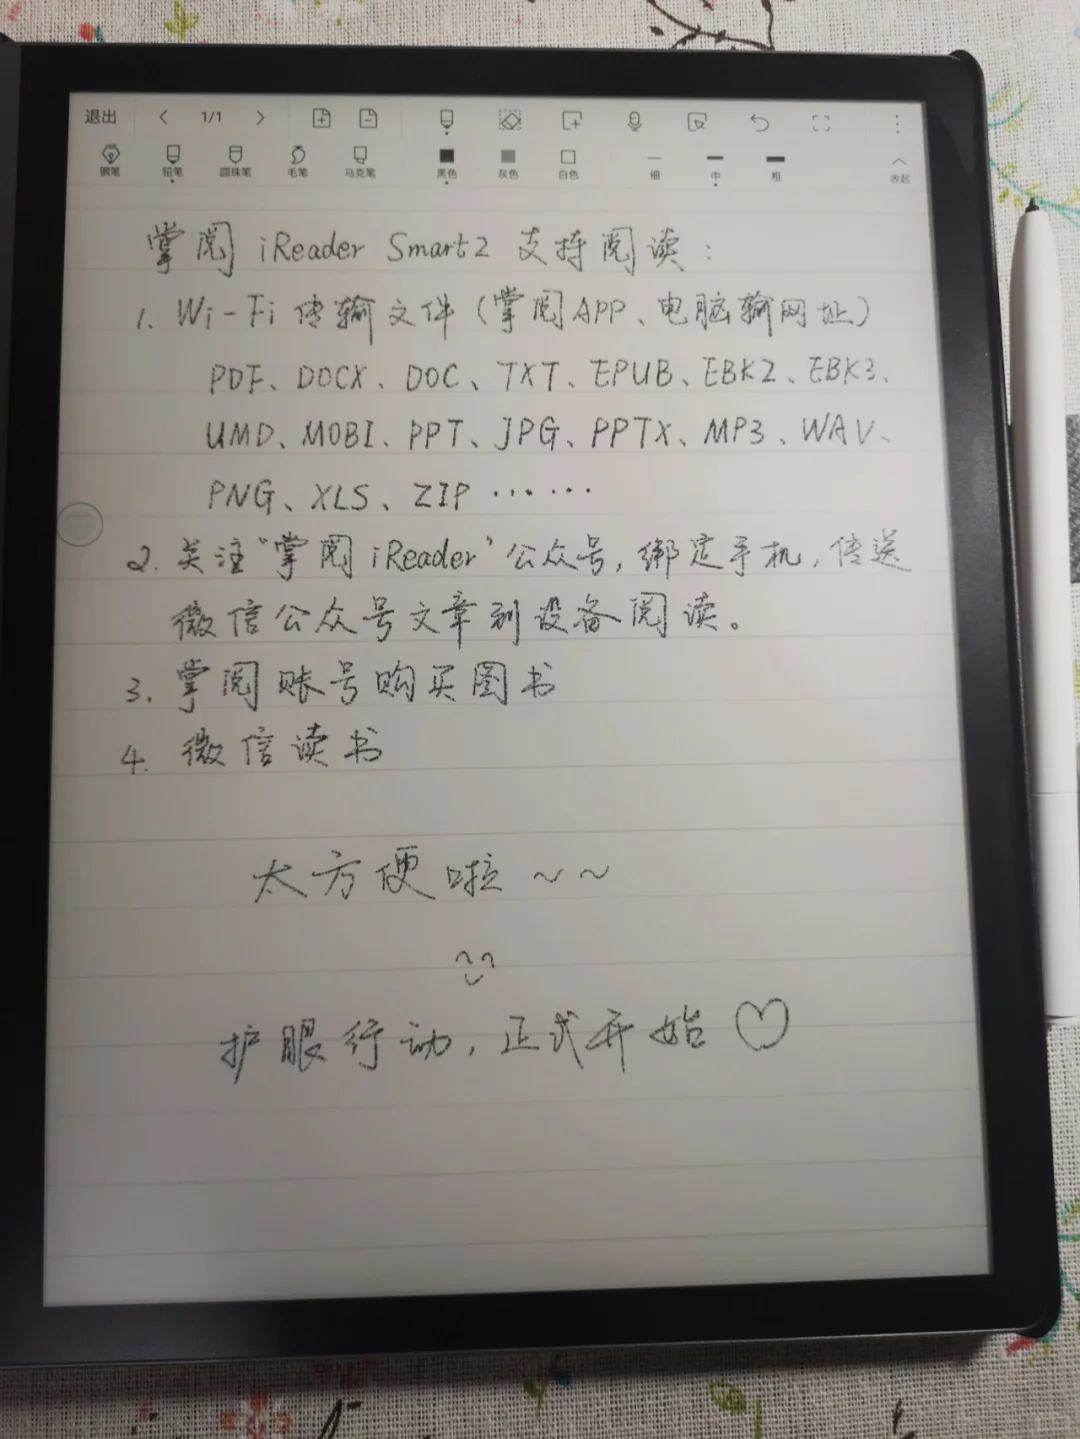 退出 1/1
钢笔 铅笔 圆珠笔 毛笔 马克笔 黑色 灰色 白色 细 中 粗 收起
掌阅 iReader Smart2 支持阅读：
1. Wi-Fi 传输文件（掌阅APP、电脑输网址）
PDF、DOCX、DOC、TXT、EPUB、EBK2、EBK3、
UMD、MOBI、PPT、JPG、PPTX、MP3、WAV、
PNG、XLS、ZIP ……
2. 关注“掌阅 iReader”公众号，绑定手机，传送
微信公众号文章到设备阅读。
3. 掌阅账号购买图书
4. 微信读书
太方便啦~~
护眼行动，正式开始♡